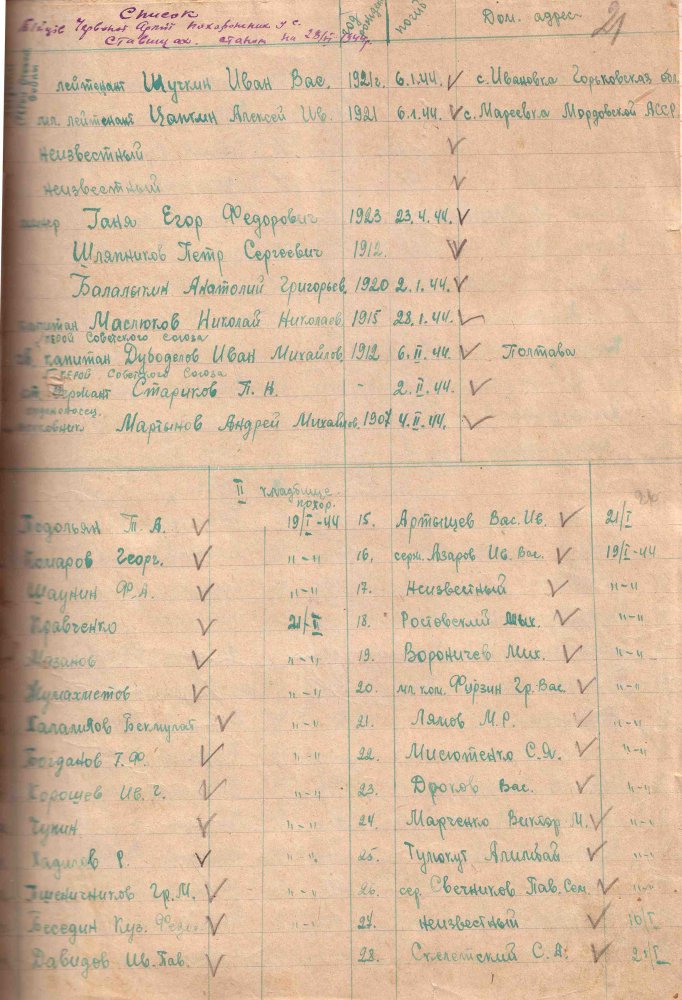 Список
Бійців Червоної Армії похоронених у с.
Ставищах. станом на 23/ІІ 1944р.
год рожден погиб Дом. адрес 21
лейтенант Щучкин Иван Вас. 1921г. 6.1.44. с. Ивановка Горьковская обл.
мл. лейтенант Цапкин Алексей Ив. 1921 6.1.44. с. Мареевка Мордовской АССР
неизвестный
неизвестный
Ганя Егор Федорович 1923 23.4.44.
Шляпников Петр Сергеевич 1912.
Балалыкин Анатолий Григорьев. 1920 2.1.44.
капитан Маслюков Николай Николаев. 1915 28.1.44.
Герой Советского союза
гв. капитан Дубоделов Иван Михайлов. 1912 6.ІІ.44. Полтава
Герой Советского союза
ст. сержант Стариков П. Н. - 2.ІІ.44.
орденоносец.
Мартынов Андрей Михайлов. 1907 4.ІІ.44.
ІІ кладбище
похор.
Подольян Т. А. 19/І-44 15. Артыщев Вас. Ив. 21/І
Комаров Георг. "-" 16. серж. Азаров Ив. Вас. 19/І-44
Шаунин Ф. А. "-" 17. Неизвестный "-"
Кравченко 21/ІІ 18. Ростовский Мих. "-"
Мазанов "-" 19. Вороничев Мих. "-"
Жумахметов "-" 20. мл. ком. Фурзин Гр. Вас. "-"
Калалилов Бекмурат "-" 21. Лямов М. Р. "-"
Богданов Т. Ф. "-" 22. Мисютенко С. Я. "-"
Хорошев Ив. Г. "-" 23. Дроков Вас. "-"
Чукин "-" 24. Марченко Виктор М. "-"
Хадилов Р. "-" 25. Тулюкут Алимбай "-"
Пшеничников Гр. М. "-" 26. сер. Свечников Пав. Сем. "-"
Беседин Куз. "-" 27. неизвестный 16/І
Давидов Ив. Пав. "-" 28. Скелетский С. А. 21/І